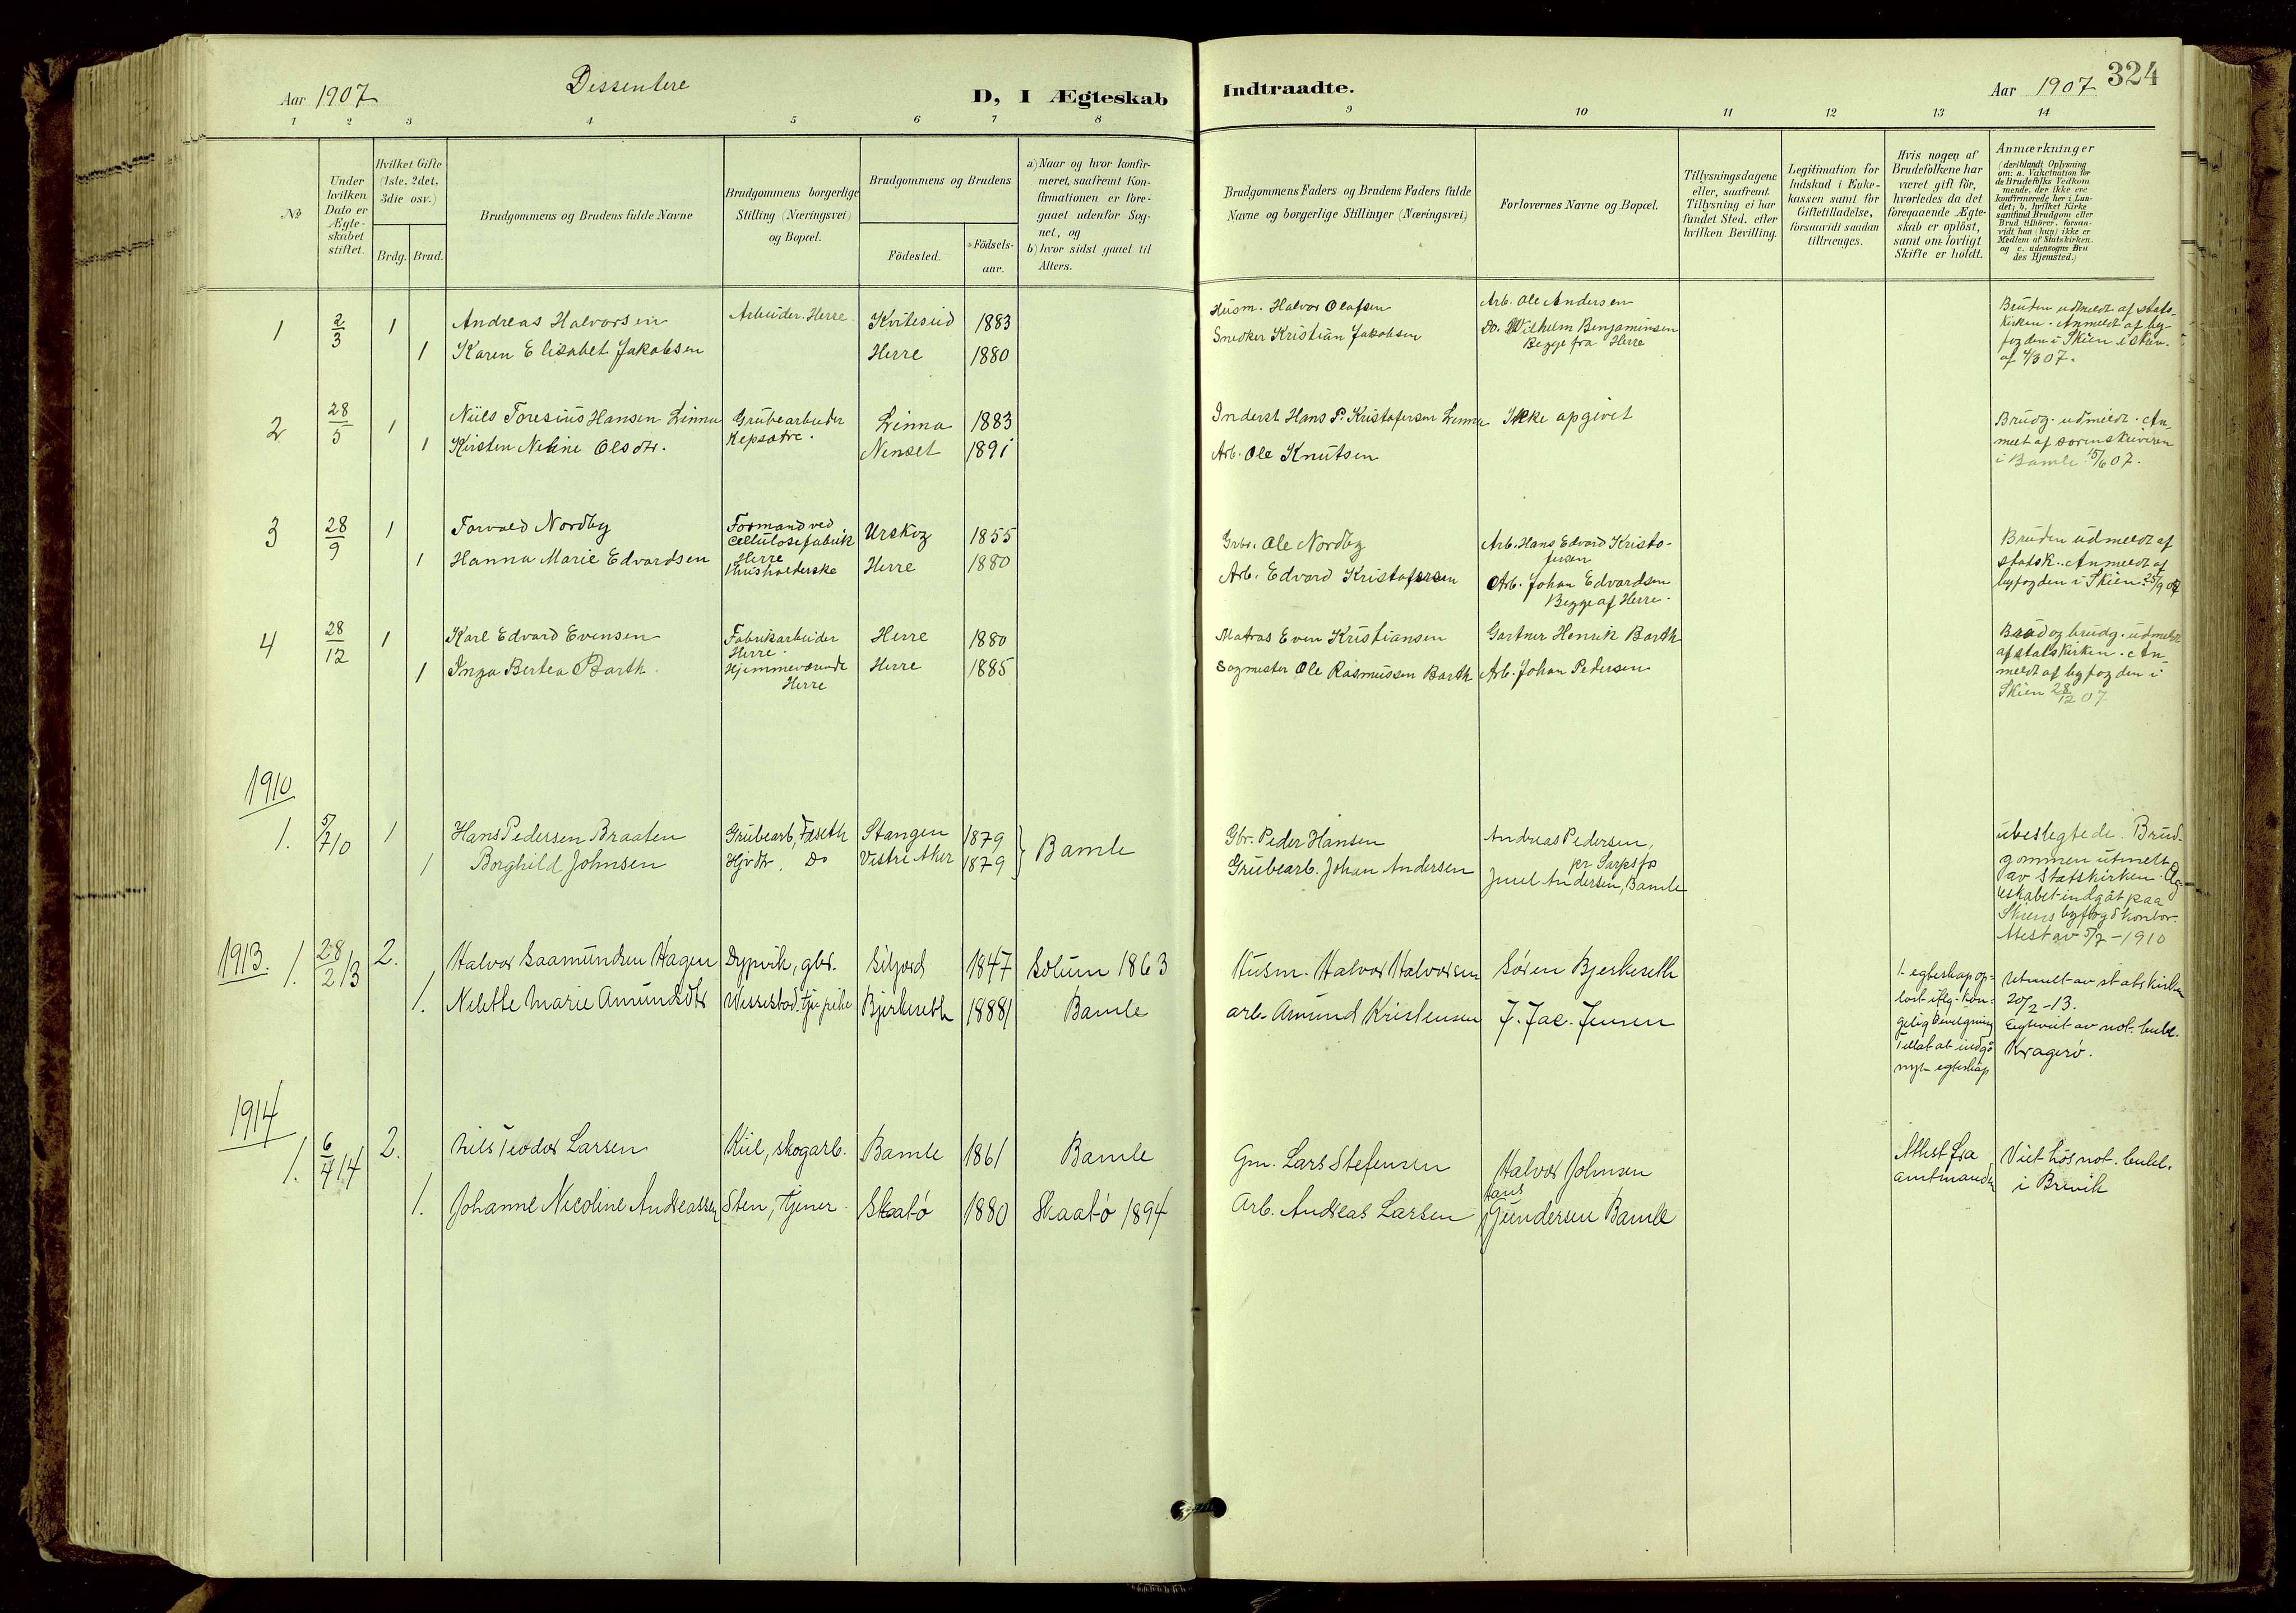 Aar 1907
Dissentere
D, I Ægteskab
Indtraadte.
Aar 1907
324
1 2 3 4 5 6 7 8 9 10 11 12 13 14
No
Under hvilken Dato er Ægteskabet stiftet.
Hvilket Gifte (1ste, 2det, 3die osv.)
Brdg. Brud.
Brudgommens og Brudens fulde Navne
Brudgommens borgerlige Stilling (Næringsvei) og Bopæl.
Brudgommens og Brudens
Födested.
Födsels-aar.
a) Naar og hvor konfirmeret, saafremt Konfirmationen er foregaaet udenfor Sognet, og
b) hvor sidst gaaet til Alters.
Brudgommens Faders og Brudens Faders fulde Navne og borgerlige Stillinger (Næringsvei)
Forlovernes Navne og Bopæl.
Tillysningsdagene eller, saafremt Tillysning ei har fundet Sted, efter hvilken Bevilling.
Legitimation for Indskud i Enkekassen samt for Giftetilladelse, forsaavidt saadan tiltrænges.
Hvis nogen af Brudefolkene har været gift för, hvorledes da det foregaaende Ægteskab er oplöst, samt om lovligt Skifte er holdt.
Anmærkninger
(deriblandt Oplysning om: a. Vakcination for de Brudefolks Vedkommende, der ikke ere konfirmerede her i Landet; b. hvilket Kirkesamfund Brudgom eller Brud tilhörer, forsaavidt han (hun) ikke er Medlem af Statskirken, og c. udensogns Brudes Hjemsted.)
1 2/3 1 Andreas Halvorsen Arbeider. Herre Kviteseid 1883 Husm. Halvor Olafsen Arb. Ole Andersen
1 Karen Elisabet Jakobsen Herre 1880 Snedker Kristian Jakobsen Do. Wilhelm Benjaminsen
Begge fra Herre
Bruden udmeldt af stats-
kirken. Anmeldt af by-
fogden i Skien i skriv.
af 4/3 07.
2 28/5 1 Niels Toresius Hansen Linna Grubearbeider Linna 1883 Inderst Hans P. Kristofersen Linna Ikke opgivet
1 Kirsten Neline Olsdtr. Nenset 1891 Arb. Ole Knutsen
Brudg. udmeldt. An-
melt af sorenskriveren
i Bamle 15/6 07.
3 28/9 1 Torvald Nordby Formand ved Cellulosefabrik Herre Urskog 1855 Grbr. Ole Nordby Arb. Hans Edvard Kristo-
fersen
1 Hanna Marie Edvardsen Husholderske Herre 1880 Arb. Edvard Kristofersen Arb. Johan Edvardsen
Begge af Herre.
Bruden udmeldt af
statsk. Anmeldt af
byfogden i Skien 25/9 07
4 28/12 1 Karl Edvard Evensen Fabrikarbeider Herre. Herre 1880 Matros Even Kristiansen Gartner Henrik Barth
1 Inga Bertea Barth. Hjemmeværende Herre Herre 1885 Sagmester Ole Rasmussen Barth Arb. Johan Pedersen
Brud og brudg. udmeldt
af statskirken. An-
meldt af byfogden i
Skien 28/12 07
1910
1. 5/7 10 1 Hans Pedersen Braaten Grubearb, Fæseth Stangen 1879 Bamle Gbr. Peder Hansen Andreas Pedersen,
pr Sarpsfos
1 Borghild Johnsen Hjvdtr. Do Vestre Aker 1879 Grubearb. Johan Andersen Juul Andersen, Bamle
ubeslegtede. Brud-
gommen utmeldt
av Statskirken. Æg-
teskabet indgåt paa
Skiens byfogdkontor.
Attest av 5/7-1910
1913. 1. 28/2 13 2. Halvor Saamundsen Hagen Dypvik, gbr. Siljord 1847 Solum 1863 Husm. Halvor Halvorsen Søren Bjerkeseth
1. Nilette Marie Amundsdtr Bjerkeseth 1888 Bamle arb. Amund Kristensen J. Jac. Jensen
1. egteskap op-
løst iflg. kon-
gelig bevilgning
Tillat at indgå
nyt egteskap
Utmelt av statskirken
20/2-13.
Egteviet av not. publ.
Kragerø.
1914
1. 6/4 14 2. Nils Teodor Larsen Kiil, skogarb. Bamle 1861 Bamle Gm. Lars Stefensen Halvor Johnsen
1. Johanne Nicoline Andreassen Sten, tjener Skaatø 1880 Skaatø 1894 Arb. Andreas Larsen Hans
Gundersen Bamle
Attest fra
amtmanden
Viet hos not. publ.
i Brevik